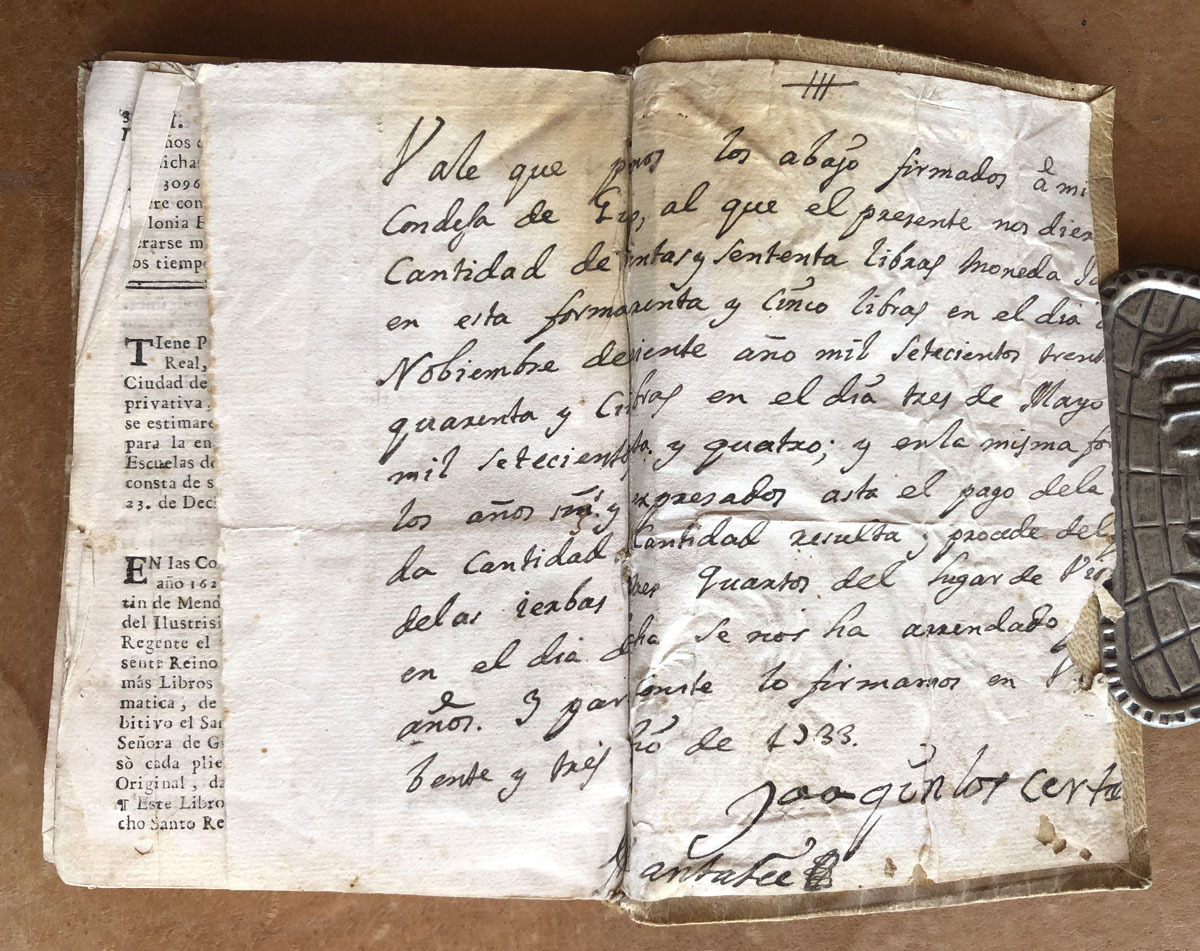 ños
icha
3096
re con
lonia
rarse m
os tiemp
TIene P
Real,
Ciudad de
privativa,
se estimare
para la en
Escuelas de
consta de s
23. de Dec
EN las Co
año 162
tin de Mend
del Ilustrisi
Regente el
sente Reino
más Libros
matica, de
bitivo el San
Señora de G
sò cada plie
Original, da
¶ Este Libro
cho Santo Re
Vale que los abajo firmados â mi
Condesa de al que el presente nos dier
Cantidad de intas y sententa libras moneda
en esta forma renta y cinco libras en el dia
Nobiembre de iente año mil setecientos trent
quarenta y Ci bras en el dia tres de Mayo
mil setecient ta y quatro; y en la misma fo
los años y expresados asta el pago dela
da Cantidad Cantidad resulta y procede del
delas ierbas res Quartos del lugar de
en el dia d cha se nos ha arrendado
años. I par conste lo firmamos en
bente y tres de 1733.
Joaquin los certa